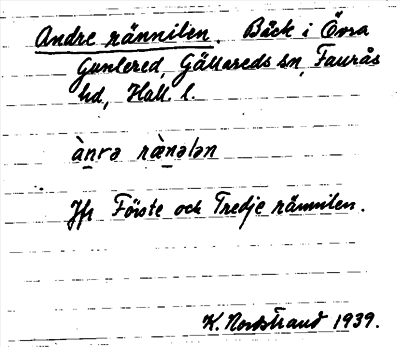 Andre rännilen. Bäck i Övra
Gunnered, Gällareds sn, Faurås
hd, Hall. l.
ànrə rànələn
Jfr Förste och Tredje rännilen.
K. Nordstrand 1939.